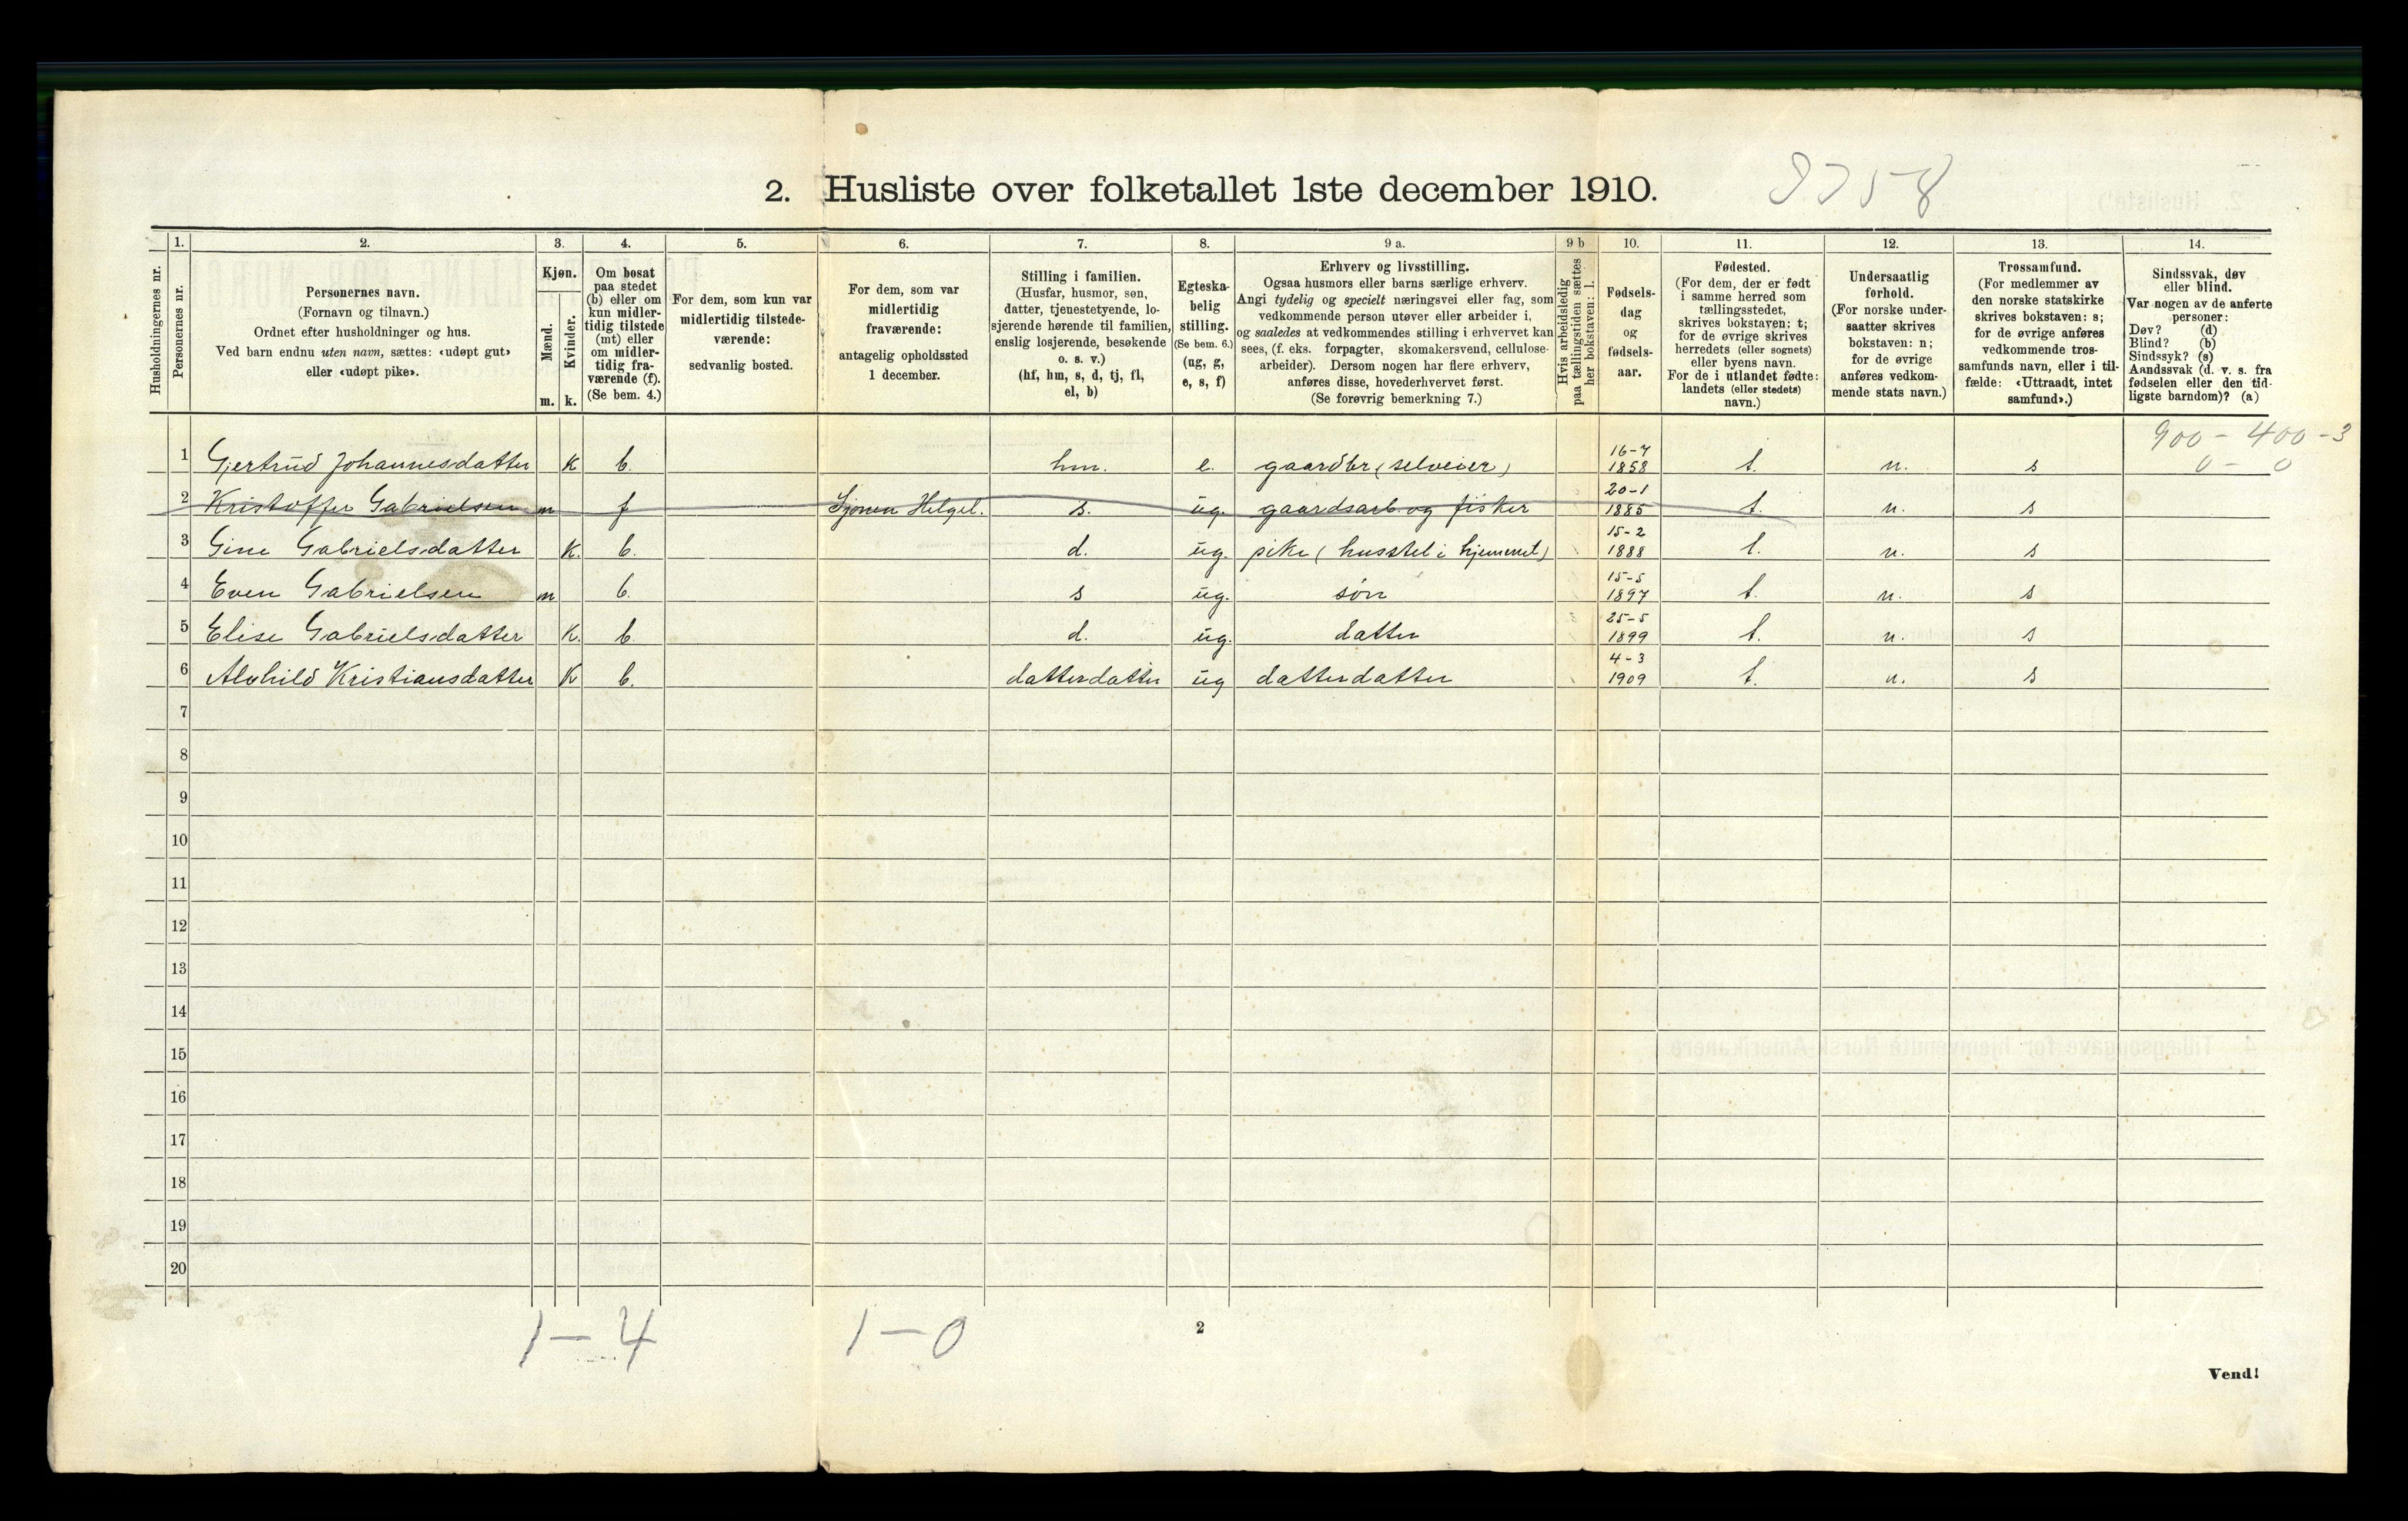 2. Husliste over folketallet 1ste december 1910.
Husholdningernes nr.
1.
Personernes nr.
2.
Personernes navn.
(Fornavn og tilnavn.)
Ordnet efter husholdninger og hus.
Ved barn endnu uten navn, sættes: «udøpt gut»
eller «udøpt pike».
3.
Kjøn.
Mænd.
Kvinder.
m. k.
4.
Om bosat
paa stedet
(b) eller om
kun midler-
tidig tilstede
(mt) eller
om midler-
tidig fra-
værende (f).
(Se bem. 4.)
5.
For dem, som kun var
midlertidig tilstede-
værende:
sedvanlig bosted.
6.
For dem, som var
midlertidig
fraværende:
antagelig opholdssted
1 december.
7.
Stilling i familien.
(Husfar, husmor, søn,
datter, tjenestetyende, lo-
sjerende hørende til familien,
enslig losjerende, besøkende
o. s. v.)
(hf, hm, s, d, tj, fl,
el, b)
8.
Egteska-
belig
stilling.
(Se bem. 6.)
(ug, g,
e, s, f)
9 a.
Erhverv og livsstilling.
Ogsaa husmors eller barns særlige erhverv.
Angi tydelig og specielt næringsvei eller fag, som
vedkommende person utøver eller arbeider i,
og saaledes at vedkommendes stilling i erhvervet kan
sees, (f. eks. forpagter, skomakersvend, cellulose-
arbeider). Dersom nogen har flere erhverv,
anføres disse, hovederhvervet først.
(Se forøvrig bemerkning 7.)
9 b
Hvis arbeidsledig
paa tællingstiden sættes
her bokstaven: l.
10.
Fødsels-
dag
og
fødsels-
aar.
11.
Fødested.
(For dem, der er født
i samme herred som
tællingsstedet,
skrives bokstaven: t;
for de øvrige skrives
herredets (eller sognets)
eller byens navn.
For de i utlandet fødte:
landets (eller stedets)
navn.)
12.
Undersaatlig
forhold.
(For norske under-
saatter skrives
bokstaven: n;
for de øvrige
anføres vedkom-
mende stats navn.)
13.
Trossamfund.
(For medlemmer av
den norske statskirke
skrives bokstaven: s;
for de øvrige anføres
vedkommende tros-
samfunds navn, eller i til-
fælde: «Uttraadt, intet
samfund».)
14.
Sindssvak, døv
eller blind.
Var nogen av de anførte
personer:
Døv? (d)
Blind? (b)
Sindssyk? (s)
Aandssvak (d. v. s. fra
fødselen eller den tid-
ligste barndom)? (a)
900 - 400 - 3
0 - 0
1 Gjertrud Johannesdatter k b. hm. e. gaardbr (selveier) 16-7 1858 t. n. s
2 Kristoffer Gabrielsen m f Sjonen Helgel. s. ug. gaardsarb. og fisker 20-1 1885 t. n. s
3 Gine Gabrielsdatter k. b. d. ug. pike (husstel i hjemmet) 15-2 1888 t. n. s
4 Even Gabrielsen m b. s ug. søn 15-5 1897 t. n. s
5 Elise Gabrielsdatter k. b. d. ug. datter 25-5 1899 t. n. s
6 Alvhild Kristiansdatter k b. datterdatter ug datterdatter 4-3 1909 t. n. s
7
8
9
10
11
12
13
14
15
16
17
18
19
20
1 - 4 1 - 0
2
Vend!